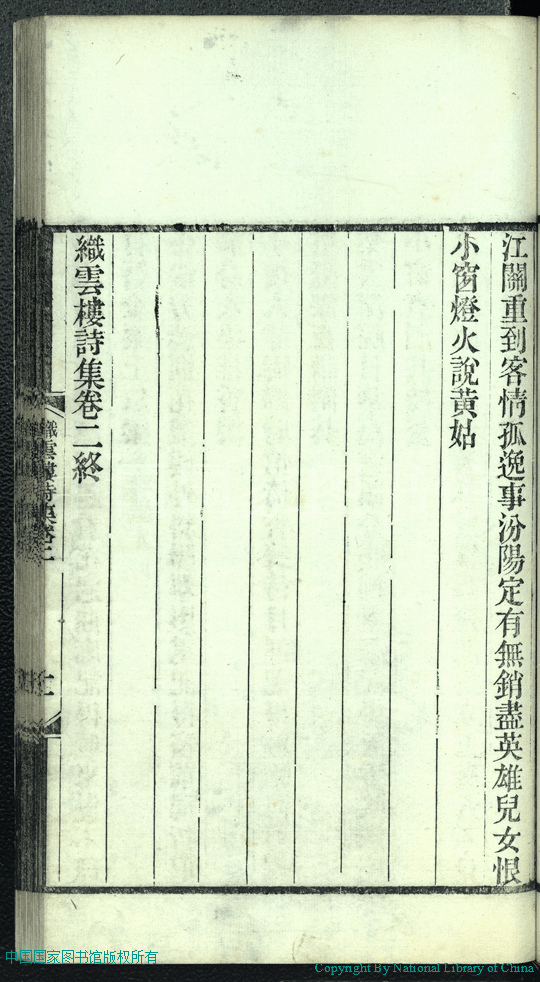 江關重到客情孤逸事汾陽定有無銷盡英雄兒女恨
小窗燈火說黃姑
織雲樓詩集卷二終
織雲樓詩集卷二
中国国家图书馆版权所有
Copyright By National Library of China